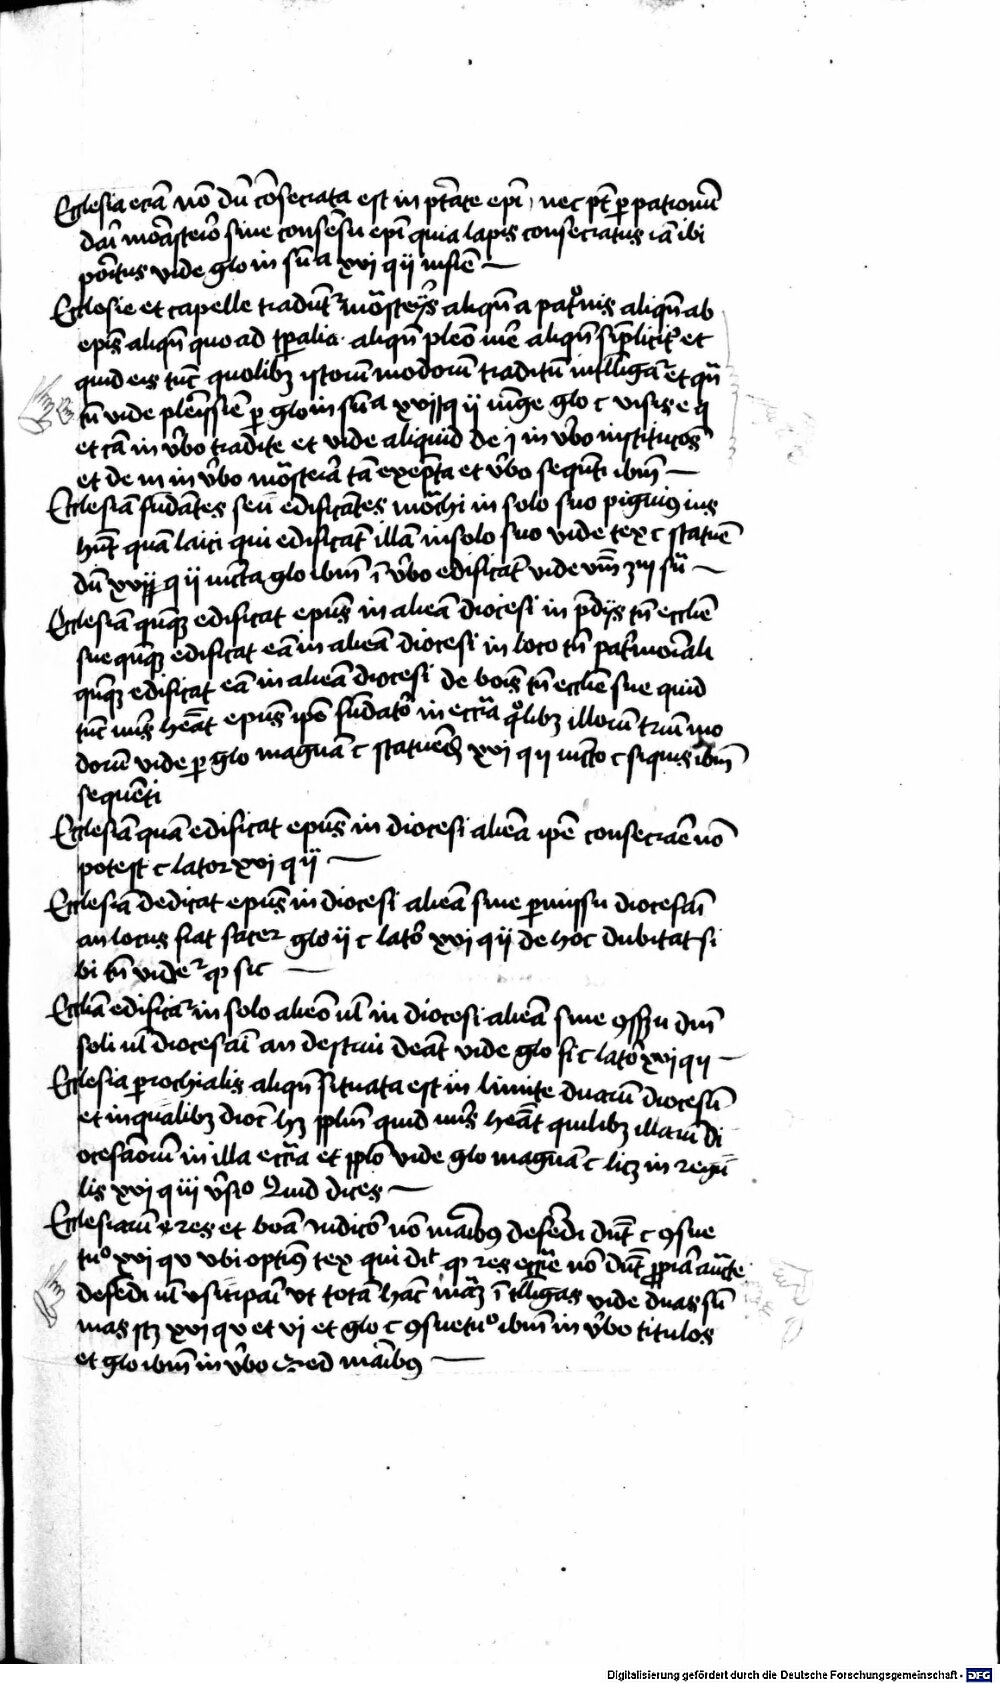 Ecclesia etiā nō dū cōsecrata est in ptāte epī, nec pt̄ p patronū
dari moāsterio sine consēsu epī quia lapis consecratus iā ibi
positus vide glo in sūa xvj q ij in fine
Ecclesie et capelle tradūt᷑ moāsterijs aliqn̄ a patōnis aliqn̄ ab
epis aliqn̄ quo ad tꝑalia aliqn̄ pleno iure aliqn̄ simplicit᷑ et
quid eis tūc quolibꝫ istorum modorum traditū intelligat᷑ et qn̄
tn̄ vide plenissime ꝑ glo in sūa xvj q ij glo c visis e q
et tā in v̄bo tradite et vide aliquid de in v̄bo institucōs
et de in v̄bo moāsteria tā exēpta et v̄bo sequēti ibm̄
Ecclesiā fūdātes seu edificātes moāchi in solo suo piguius ius
hn̄t quā laici qui edificāt illā in solo suo vide tex c statuē
dū xvj q ij iūcta glo ibm̄ ī v̄bo edificat vide sūt
Ecclesiā quāqꝫ edificat epūs in aliena diocesi in p̄dijs tn̄ ecclie
sue qn̄qꝫ edificat eā in aliena diocesi in loco tn̄ pat᷑moiali
qn̄qꝫ edificat eā in aliena diocesi de bois tn̄ ecclie sue quid
tūc iuris hēat epūs ipe fūdator in ecclia qolibꝫ illorum trium mo
dorum vide ꝑ glo magnā c statuēdū xvj q ij iūcto c siquis ibm̄
sequēti
Ecclesiā quā edificat epūs in diocesi aliena ipe consecrare nō
potest c lator xvj q ij
Ecclesiā dedicat epūs in diocesi aliena sine ꝑmissu diocesani
an locus fiat sacer glo ij c lator xvj q ij de hoc dubitat si
bi tn̄ videt᷑ ꝙ sic
Eccliam edificat᷑ in solo alieno ul in diocesi aliena sine ꝯsensu dni
soli ul diocesani an destrui debeat vide glo fi c lator xvj q ij
Ecclesia prochialis aliqn̄ situata est in limite duarum diocesū
et in qualibꝫ dioc hꝫ pplm̄ quid iuris hēat quilibꝫ illarum di
ocesanorum in illa ecclia et pplo vide glo magnā c licꝫ in regu
lis xvj q iij v̄sio Quid dices
Ecclesiarum res et bona iudicio nō manibꝯ defendi dn̄t c ꝯsue
tuo xvj q v vbi optimus tex qui dicit ꝙ res ecclie nō dn̄t ppria aucte
defendi ul vsurpari ut totā hāc māꝫ ītelligas vide duas sum
mas scꝫ xvj q v et vj et glo c ꝯsuetuo ibm̄ in v̄bo titulos
et glo ibm̄ in v̄bo sed manibꝯ
Digitalisierung gefördert durch die Deutsche Forschungsgemeinschaft - DFG